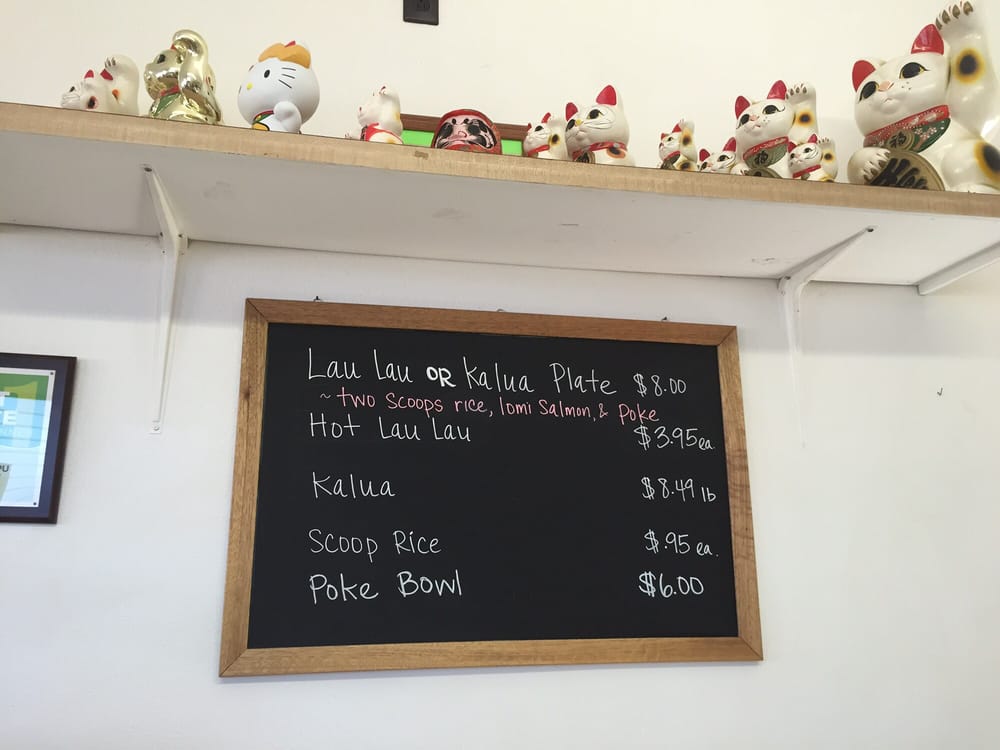 Lau Lau OR Kalua Plate $8.00
~ two scoops rice, lomi Salmon, & Poke
Hot Lau Lau $3.95 ea.
Kalua $8.49 lb
Scoop Rice $.95 ea.
Poke Bowl $6.00